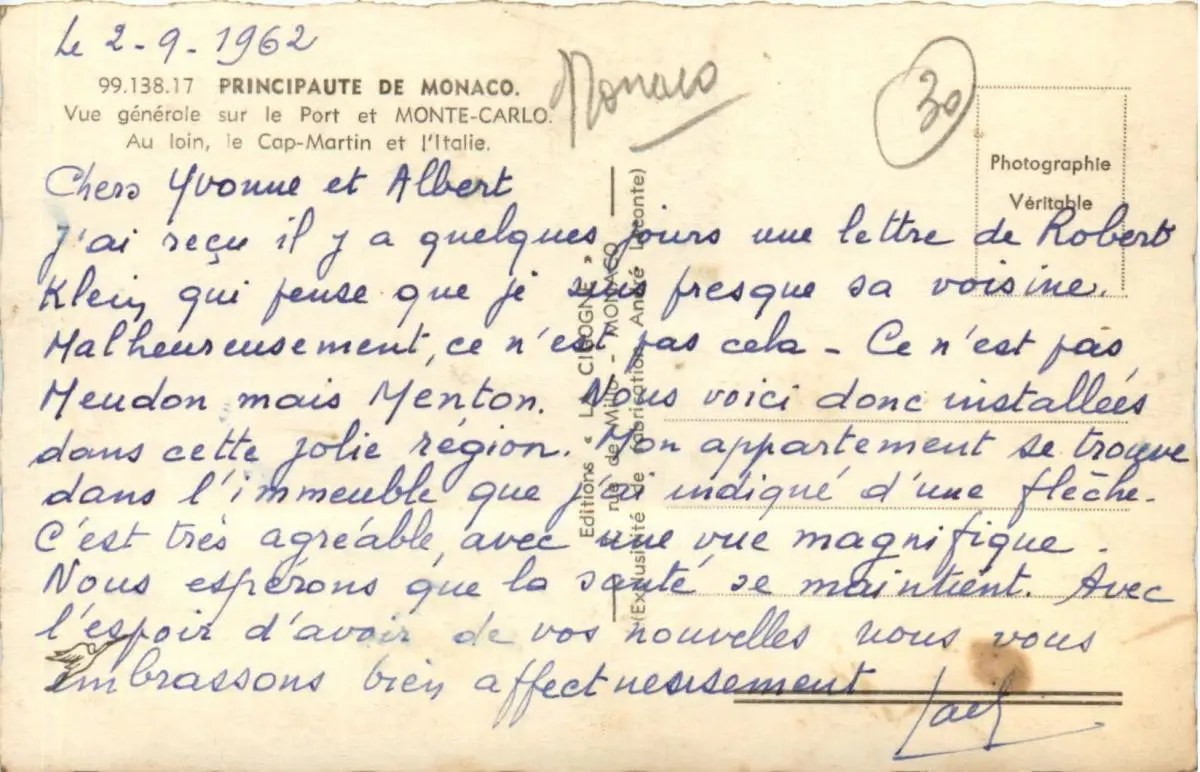 Le 2-9-1962
99.138.17 PRINCIPAUTE DE MONACO.
Vue générale sur le Port et MONTE-CARLO.
Au loin, le Cap-Martin et l'Italie.
Monaco
30
Photographie
Véritable
Chers Yvonne et Albert
J'ai reçu il y a quelques jours une lettre de Robert
Klein qui pense que je suis presque sa voisine.
Malheureusement, ce n'est pas cela - Ce n'est pas
Meudon mais Menton. Nous voici donc installées
dans cette jolie région. Mon appartement se trouve
dans l'immeuble que j'ai indiqué d'une flèche.
C'est très agréable, avec une vue magnifique.
Nous espérons que la santé se maintient. Avec
l'espoir d'avoir de vos nouvelles nous vous
embrassons bien affectueusement
Editions « LA CIGOGNE »
rue de Millo - MONACO
(Exclusivité de fabrication André Leconte)